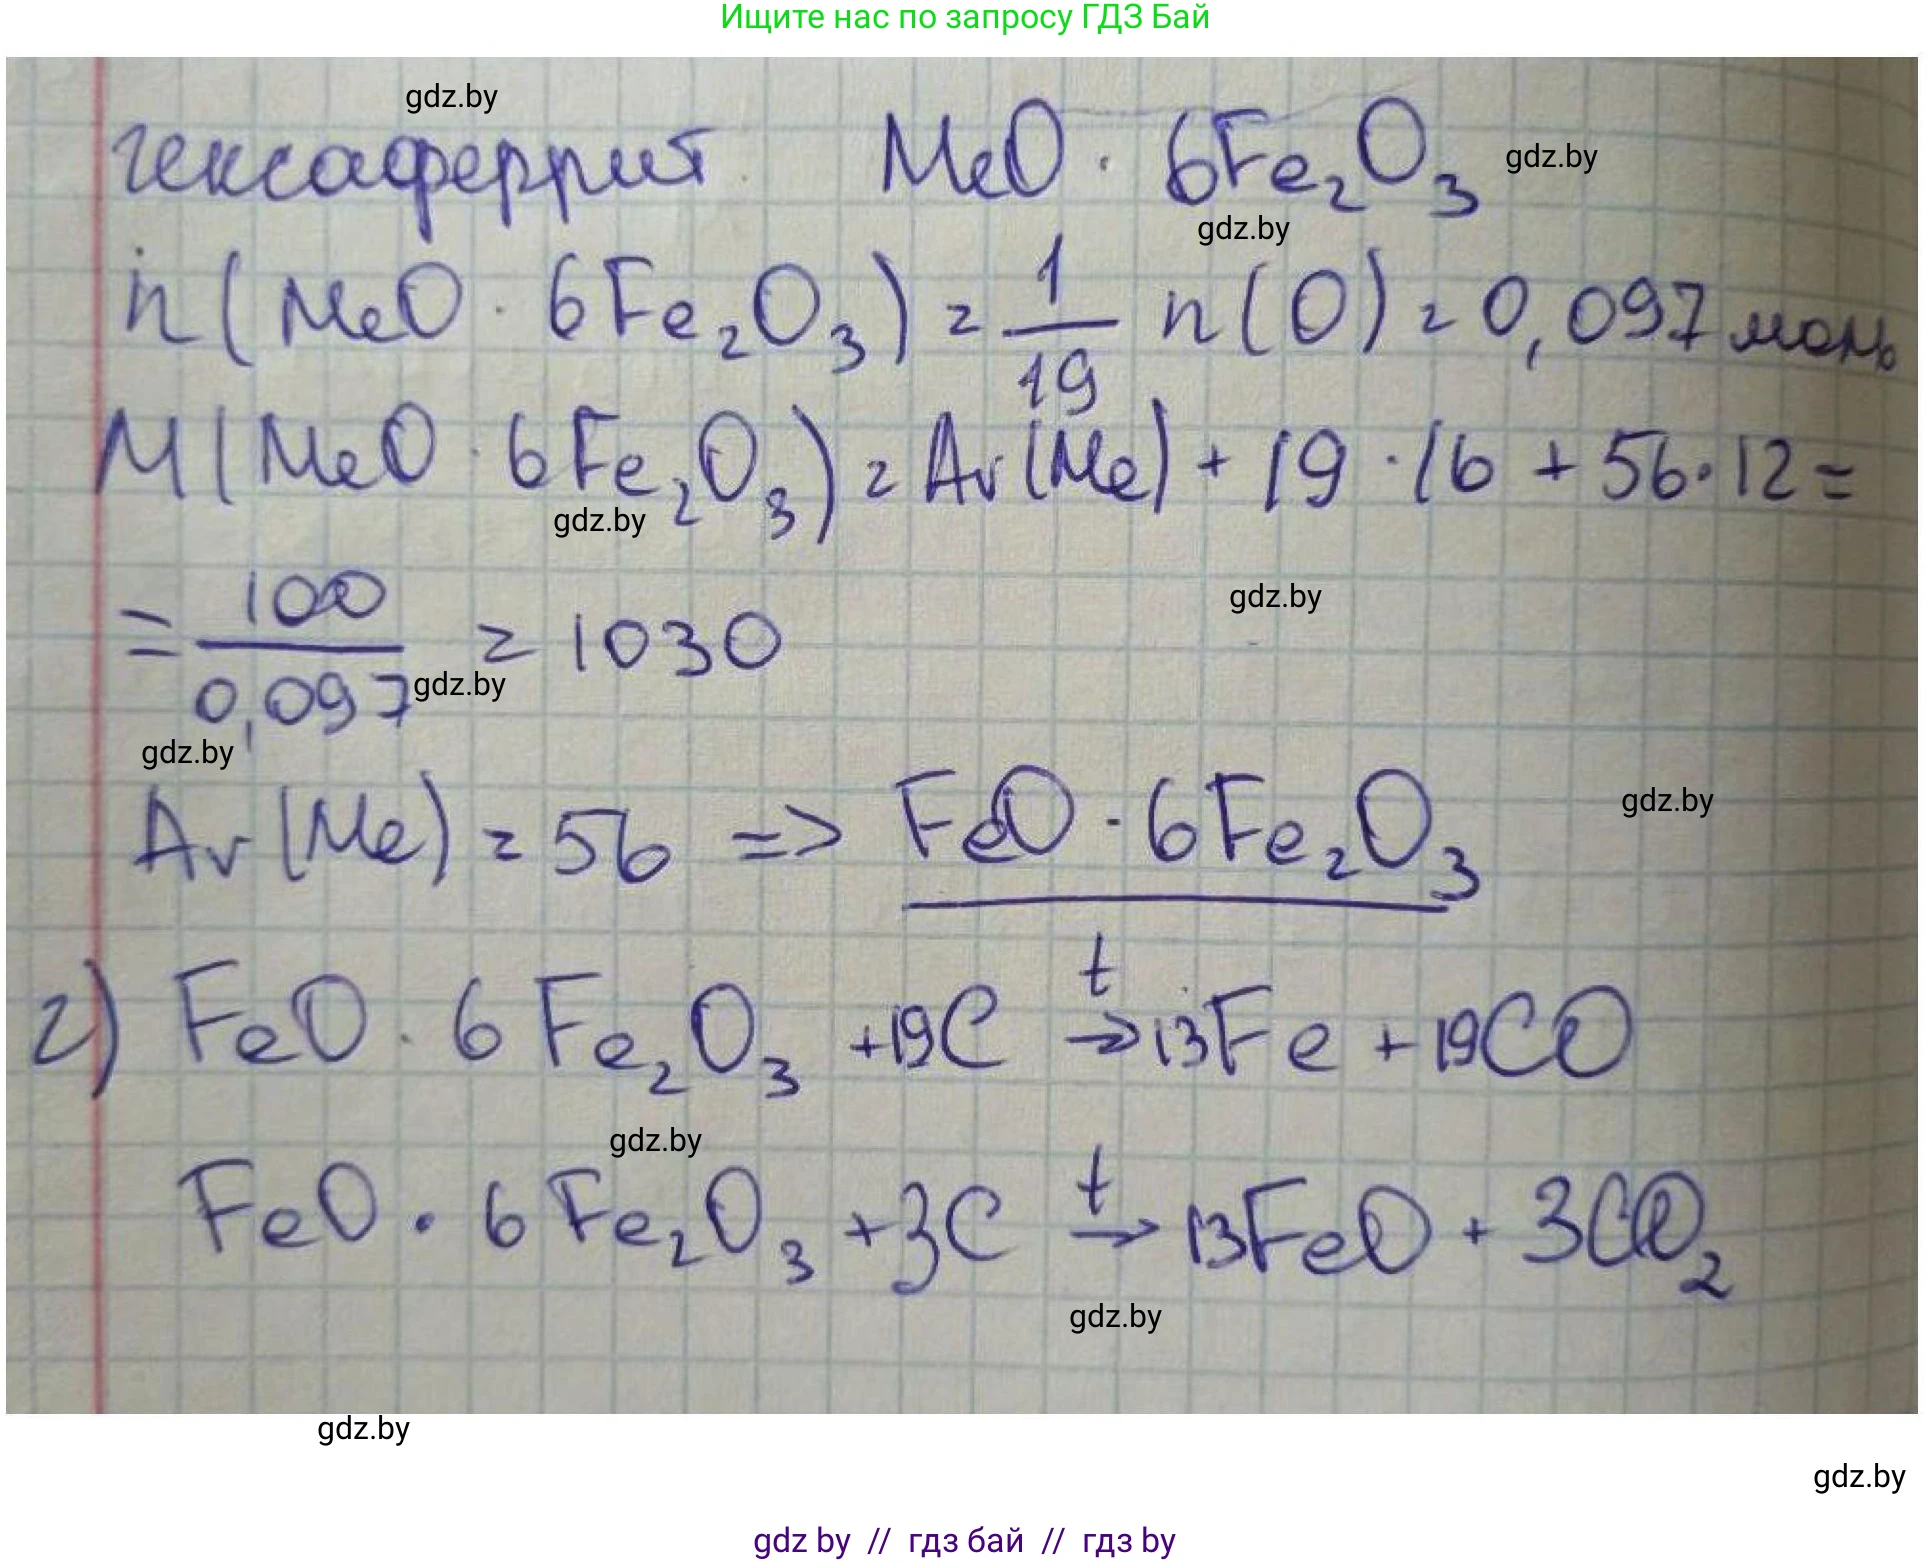 Ищите нас по запросу ГДЗ Бай
gdz.by
гексаферрит MeO · 6Fe₂O₃ gdz.by
gdz.by
n(MeO · 6Fe₂O₃) = 1/19 n(O) = 0,097 моль
M(MeO · 6Fe₂O₃) = Ar(Me) + 19 · 16 + 56 · 12 =
gdz.by
= 100/0,097 = 1030
gdz.by
gdz.by
gdz.by
Ar(Me) = 56 => FeO · 6Fe₂O₃
gdz.by
г) FeO · 6Fe₂O₃ + 19C t→ 13Fe + 19CO
gdz.by
FeO · 6Fe₂O₃ + 3C t→ 13FeO + 3CO₂
gdz.by
gdz.by
gdz.by
gdz by // гдз бай // гдз by